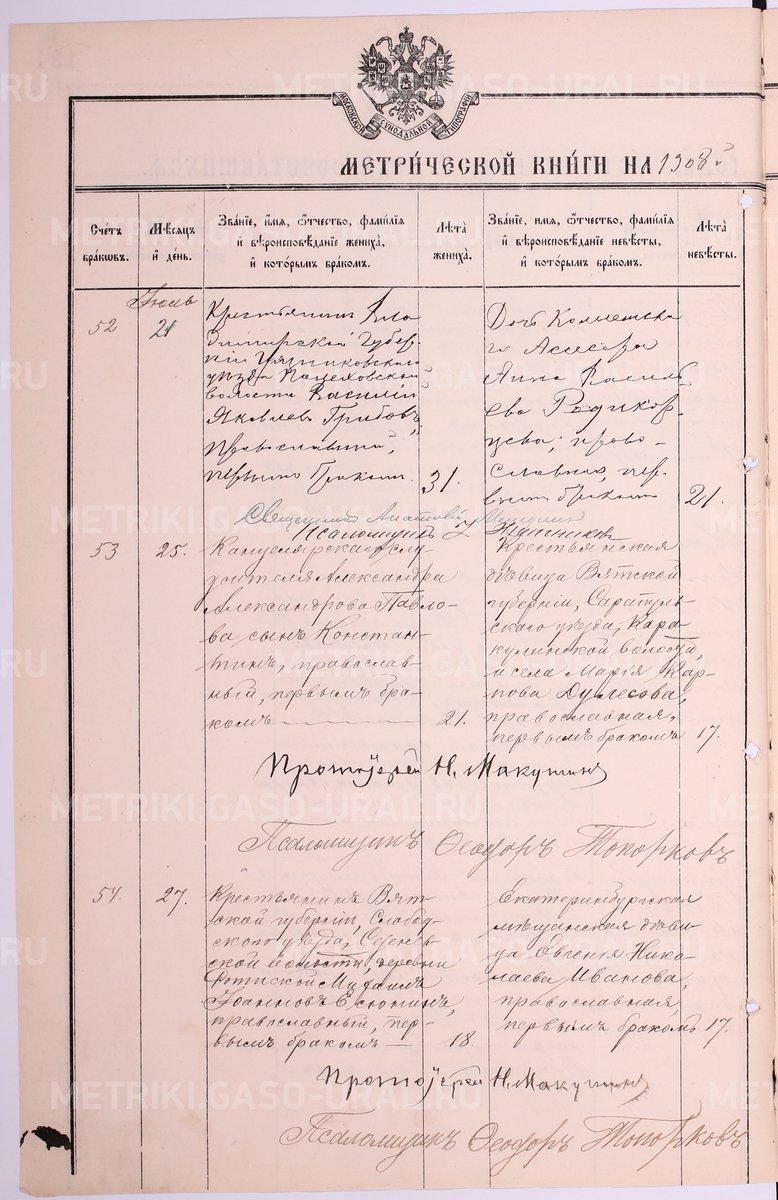 МОСКОВСКОЙ СѴНОДАЛЬНОЙ ТИПОГРАФІИ
МЕТРИЧЕСКОЙ КНИГИ НА 1908 г.
Счетъ браковъ.
Мѣсяцъ и день.
Званіе, имя, отчество, фамилія и вѣроисповѣданіе жениха, и которымъ бракомъ.
Лѣта жениха.
Званіе, имя, отчество, фамилія и вѣроисповѣданіе невѣсты, и которымъ бракомъ.
Лѣта невѣсты.
Іюль
52
21
Крестьянинъ Вла
димірской Губер
ніи Вязниковскаго
уѣзда Палеховской
волости Василій
Яковлевъ Грибовъ,
православный,
первымъ бракомъ.
31.
Дочь Коллежска
го Ассесора
Анна Василь
ева
право-
славная, пер
вымъ бракомъ
21.
Священникъ
Псаломщикъ
53
25.
Канцелярскаго слу
жителя Александра
Александрова Павло-
ва сынъ Констан-
тинъ, православ-
ный, первымъ бра-
комъ
21.
Крестьянская
дѣвица Вятской
губерніи, Сарапуль-
скаго уѣзда, Кара
кулинской волости,
и села Марія Кар-
пова Дулесова,
православная,
первымъ бракомъ
17.
Протоіерей Н. Макушинъ
Псаломщикъ Ѳеодоръ Топорковъ
54.
27.
Крестьянинъ Вят-
ской губерніи, Слобод-
ского уѣзда,
ской волости, деревни
Михаилъ
Іоанновъ Есюнинъ,
православный, пер-
вымъ бракомъ
18.
Екатеринбургская
мѣщанская дѣви-
ца Евгенія Нико-
лаева Иванова,
православная,
первымъ бракомъ
17.
Протоіерей Н. Макушинъ
Псаломщикъ Ѳеодоръ Топорковъ
METRIKI.GASO-URAL.RU